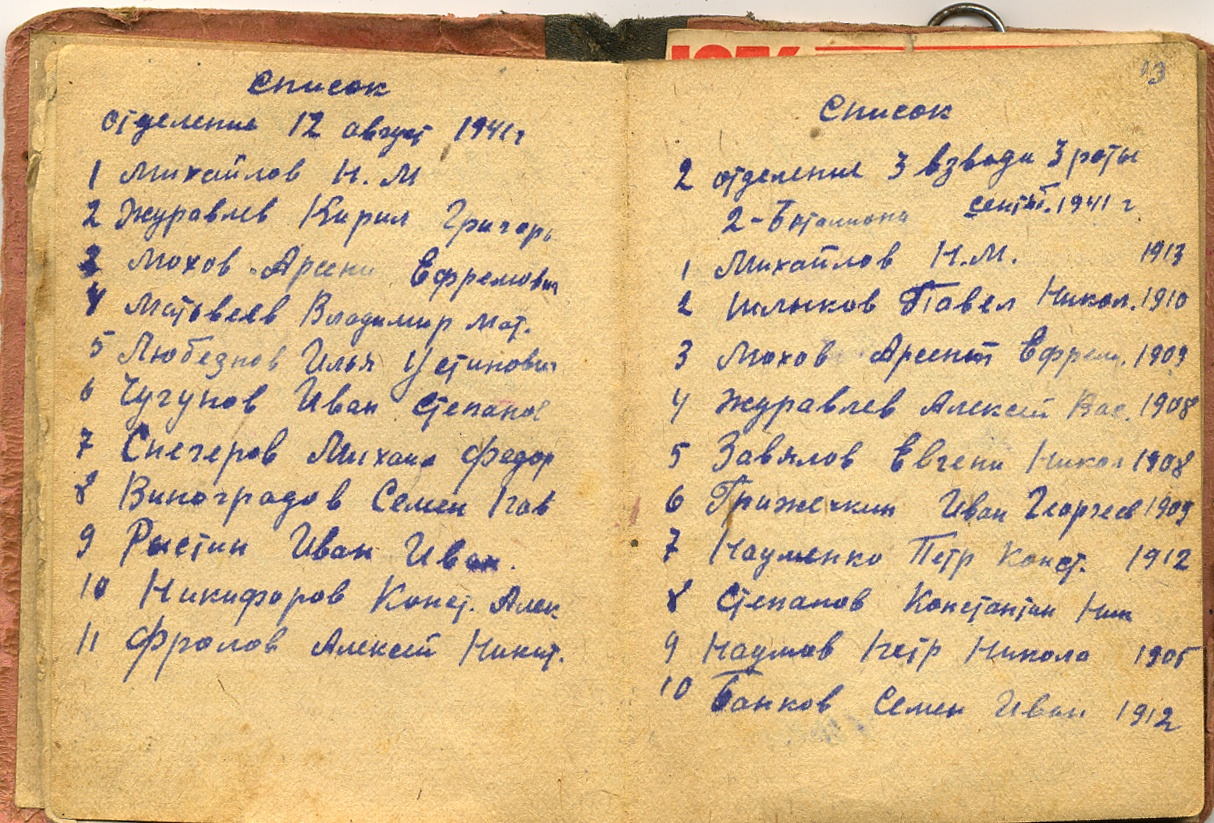 Список
отделения 12 август 1941 г
1 Михайлов Н. М
2 Журавлев Кирил Григорь
3 Мохов Арсени Ефремович
4 Матвеев Владимир Мат.
5 Любезнов Илья Устинович
6 Чугунов Иван Степанов
7 Снегерев Михаил Федор
8 Виноградов Семен
9 Рыстин Иван Иван.
10 Никифоров Конст. Алек
11 Фролов Алексей Никит.
13
Список
2 отделение 3 взвода 3 роты
2-Баталиона сент. 1941 г
1 Михайлов Н.М. 1913
2 Шлыков Павел Никол. 1910
3 Мохов Арсений Ефрем. 1909
4 Журавлев Алексей Вас. 1908
5 Завялов Евгени Никол 1908
6 Иван Георгеев 1909
7 Науменко Петр Конст. 1912
8 Степанов Константин Ник
9 Наумов Петр Никола 1905
10 Банков Семен Иван 1912